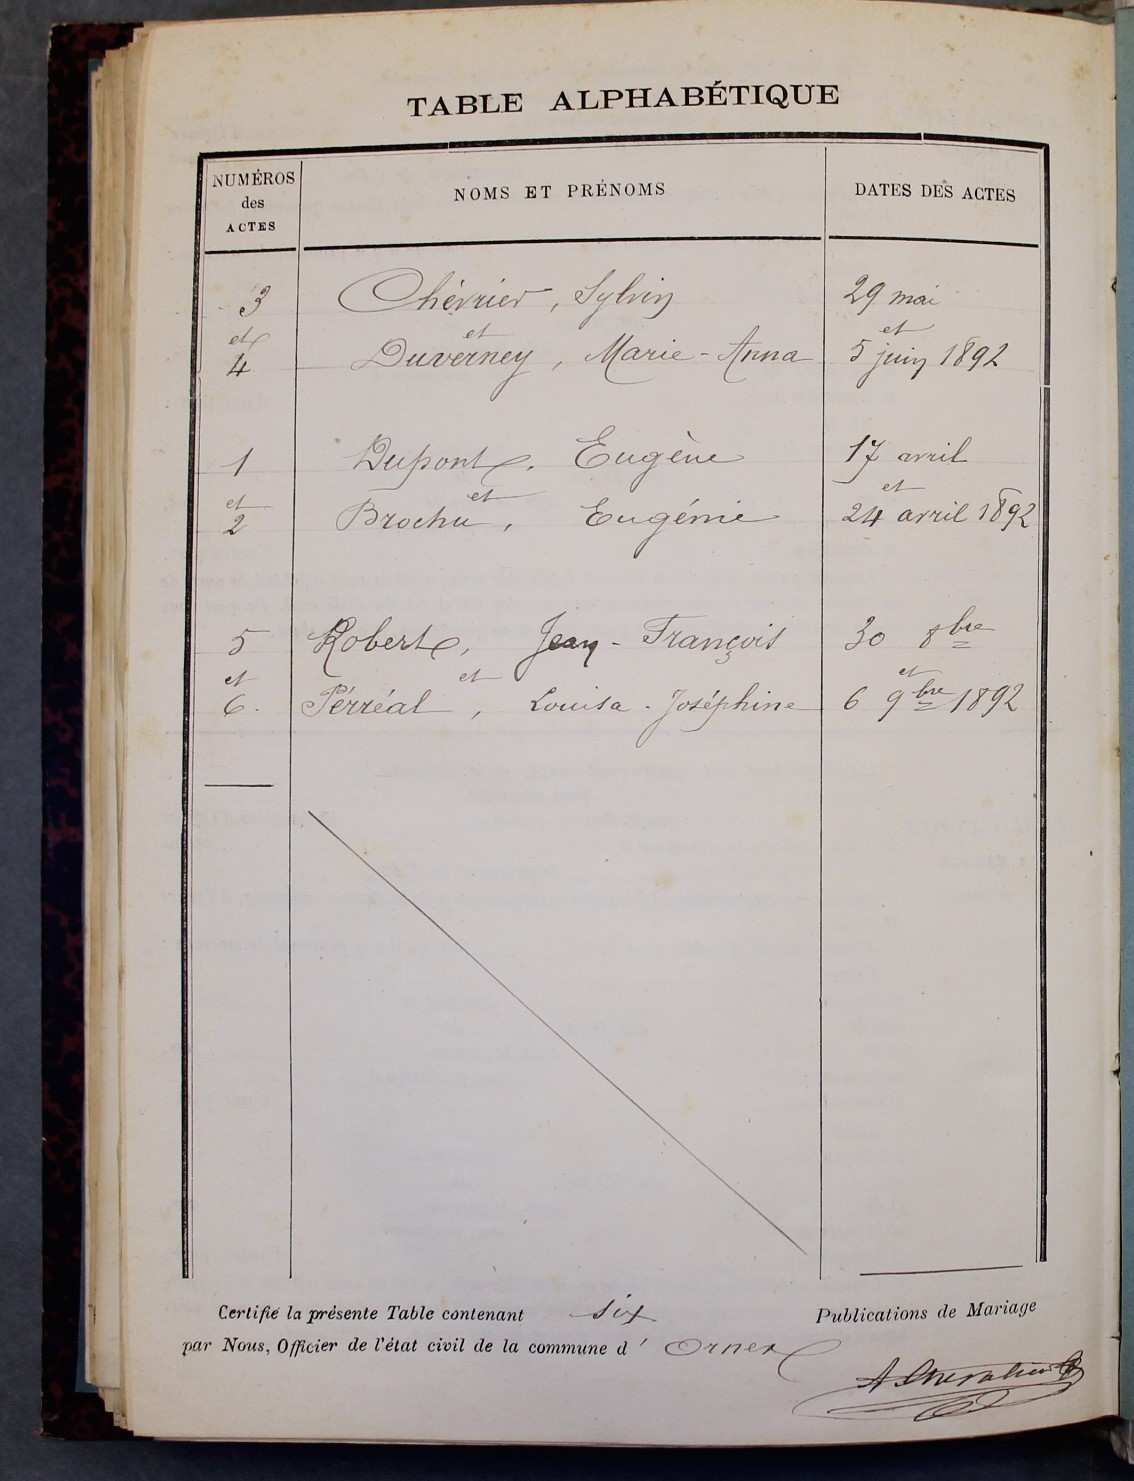 TABLE ALPHABÉTIQUE
NUMÉROS des ACTES NOMS ET PRÉNOMS DATES DES ACTES
3 Chévrier, Sylvin 29 mai
et et et
4 Duverney, Marie-Anna 5 juin 1892
1 Dupont, Eugène 17 avril
et et et
2 Brochu, Eugénie 24 avril 1892
5 Robert, Jean-François 30 8bre
et et et
6. Pérréal, Louisa-Joséphine 6 9bre 1892
Certifié la présente Table contenant six Publications de Mariage
par Nous, Officier de l'état civil de la commune d' Ornex